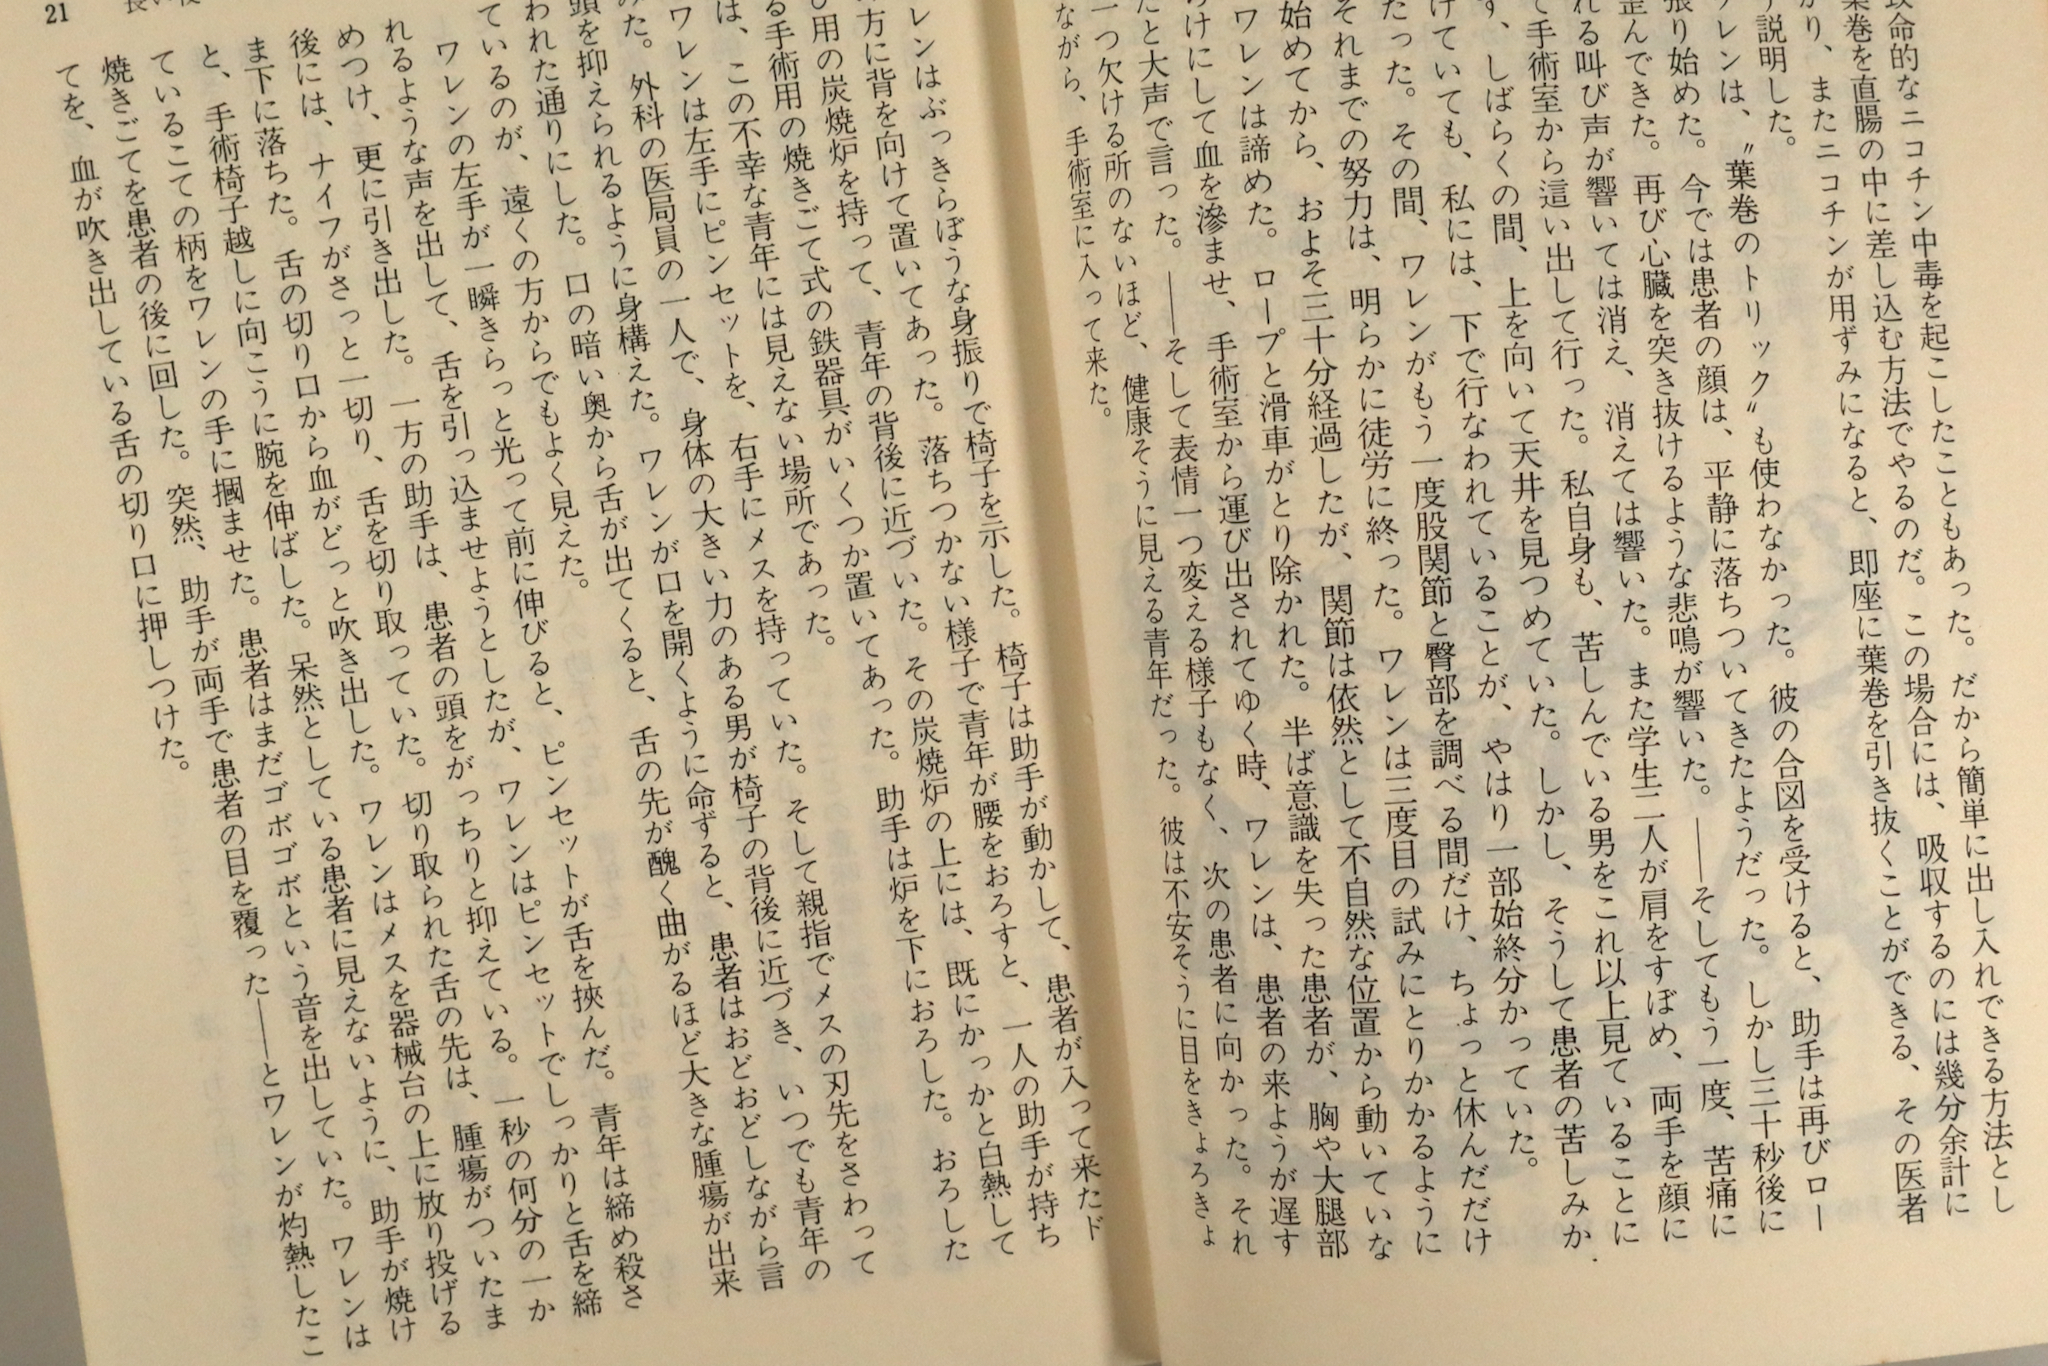 致命的なニコチン中毒を起こしたこともあった。だから簡単に出し入れできる方法とし
葉巻を直腸の中に差し込む方法でやるのだ。この場合には、吸収するのには幾分余計に
かり、またニコチンが用ずみになると、即座に葉巻を引き抜くことができる、その医者
う説明した。
ワレンは、〝葉巻のトリック〟も使わなかった。彼の合図を受けると、助手は再びロー
張り始めた。今では患者の顔は、平静に落ちついてきたようだった。しかし三十秒後に
歪んできた。再び心臓を突き抜けるような悲鳴が響いた。――そしてもう一度、苦痛に
れる叫び声が響いては消え、消えては響いた。また学生二人が肩をすぼめ、両手を顔に
て手術室から這い出して行った。私自身も、苦しんでいる男をこれ以上見ていることに
ず、しばらくの間、上を向いて天井を見つめていた。しかし、そうして患者の苦しみか
けていても、私には、下で行なわれていることが、やはり一部始終分かっていた。
たった。その間、ワレンがもう一度股関節と臀部を調べる間だけ、ちょっと休んだだけ
それまでの努力は、明らかに徒労に終った。ワレンは三度目の試みにとりかかるように
始めてから、およそ三十分経過したが、関節は依然として不自然な位置から動いていな
ワレンは諦めた。ロープと滑車がとり除かれた。半ば意識を失った患者が、胸や大腿部
けにして血を滲ませ、手術室から運び出されてゆく時、ワレンは、患者の来ようが遅す
たと大声で言った。――そして表情一つ変える様子もなく、次の患者に向かった。それ
一つ欠ける所のないほど、健康そうに見える青年だった。彼は不安そうに目をきょろきょ
ながら、手術室に入って来た。
レンはぶっきらぼうな身振りで椅子を示した。椅子は助手が動かして、患者が入って来たド
方に背を向けて置いてあった。落ちつかない様子で青年が腰をおろすと、一人の助手が持ち
び用の炭焼炉を持って、青年の背後に近づいた。その炭焼炉の上には、既にかっかと白熱して
る手術用の焼きごて式の鉄器具がいくつか置いてあった。助手は炉を下におろした。おろした
は、この不幸な青年には見えない場所であった。
ワレンは左手にピンセットを、右手にメスを持っていた。そして親指でメスの刃先をさわって
みた。外科の医局員の一人で、身体の大きい力のある男が椅子の背後に近づき、いつでも青年の
頭を抑えられるように身構えた。ワレンが口を開くように命ずると、患者はおどおどしながら言
われた通りにした。口の暗い奥から舌が出てくると、舌の先が醜く曲がるほど大きな腫瘍が出来
ているのが、遠くの方からでもよく見えた。
ワレンの左手が一瞬きらっと光って前に伸びると、ピンセットが舌を挾んだ。青年は締め殺さ
れるような声を出して、舌を引っ込ませようとしたが、ワレンはピンセットでしっかりと舌を締
めつけ、更に引き出した。一方の助手は、患者の頭をがっちりと抑えている。一秒の何分の一か
後には、ナイフがさっと一切り、舌を切り取っていた。切り取られた舌の先は、腫瘍がついたま
ま下に落ちた。舌の切り口から血がどっと吹き出した。ワレンはメスを器械台の上に放り投げる
と、手術椅子越しに向こうに腕を伸ばした。呆然としている患者に見えないように、助手が焼け
ているこての柄をワレンの手に摑ませた。患者はまだゴボゴボという音を出していた。ワレンは
焼きごてを患者の後に回した。突然、助手が両手で患者の目を覆った――とワレンが灼熱したこ
てを、血が吹き出している舌の切り口に押しつけた。
21